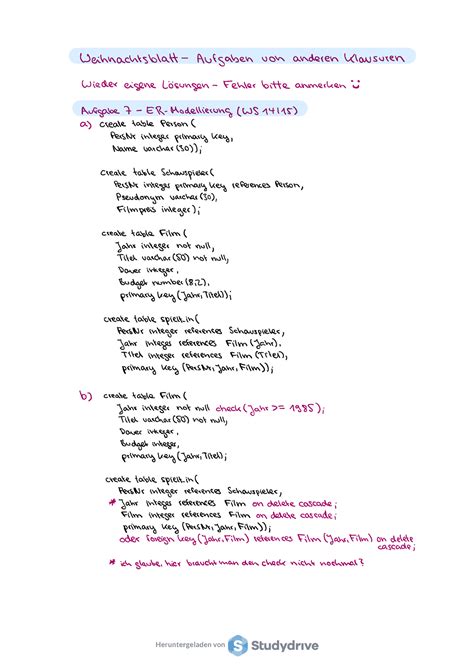 Weihnachtsblatt - Aufgaben von anderen Klausuren
Wieder eigene Lösungen - Fehler bitte anmerken
Aufgabe 7 - ER-Modellierung (WS 14/15)
a) create table Person (
PersNr integer primary key,
Name varchar(50));
create table Schauspieler(
PersNr integer primary key references Person,
Pseudonym varchar(50),
Filmpreis integer);
create table Film (
Jahr integer not null,
Titel varchar(50) not null,
Dauer integer,
Budget number(8,2),
primary key (Jahr,Titel));
create table spieltin(
PersNr integer references Schauspieler,
Jahr integer references Film (Jahr),
Titel integer references Film (Titel),
primary key (PersNr, Jahr, Film));
b) create table Film (
Jahr integer not null check(Jahr >= 1985);
Titel varchar(50) not null,
Dauer integer,
Budget integer,
primary key (Jahr,Titel);
create table spieltin(
PersNr integer references Schauspieler,
* Jahr integer references Film on delete cascade;
Film integer references Film on delete cascade;
primary key (PersNr, Jahr, Film));
oder foreign key (Jahr, Film) references Film (Jahr, Film) on delete
cascade;
* ich glaube, hier braucht man den check nicht nochmal?
Heruntergeladen von Studydrive